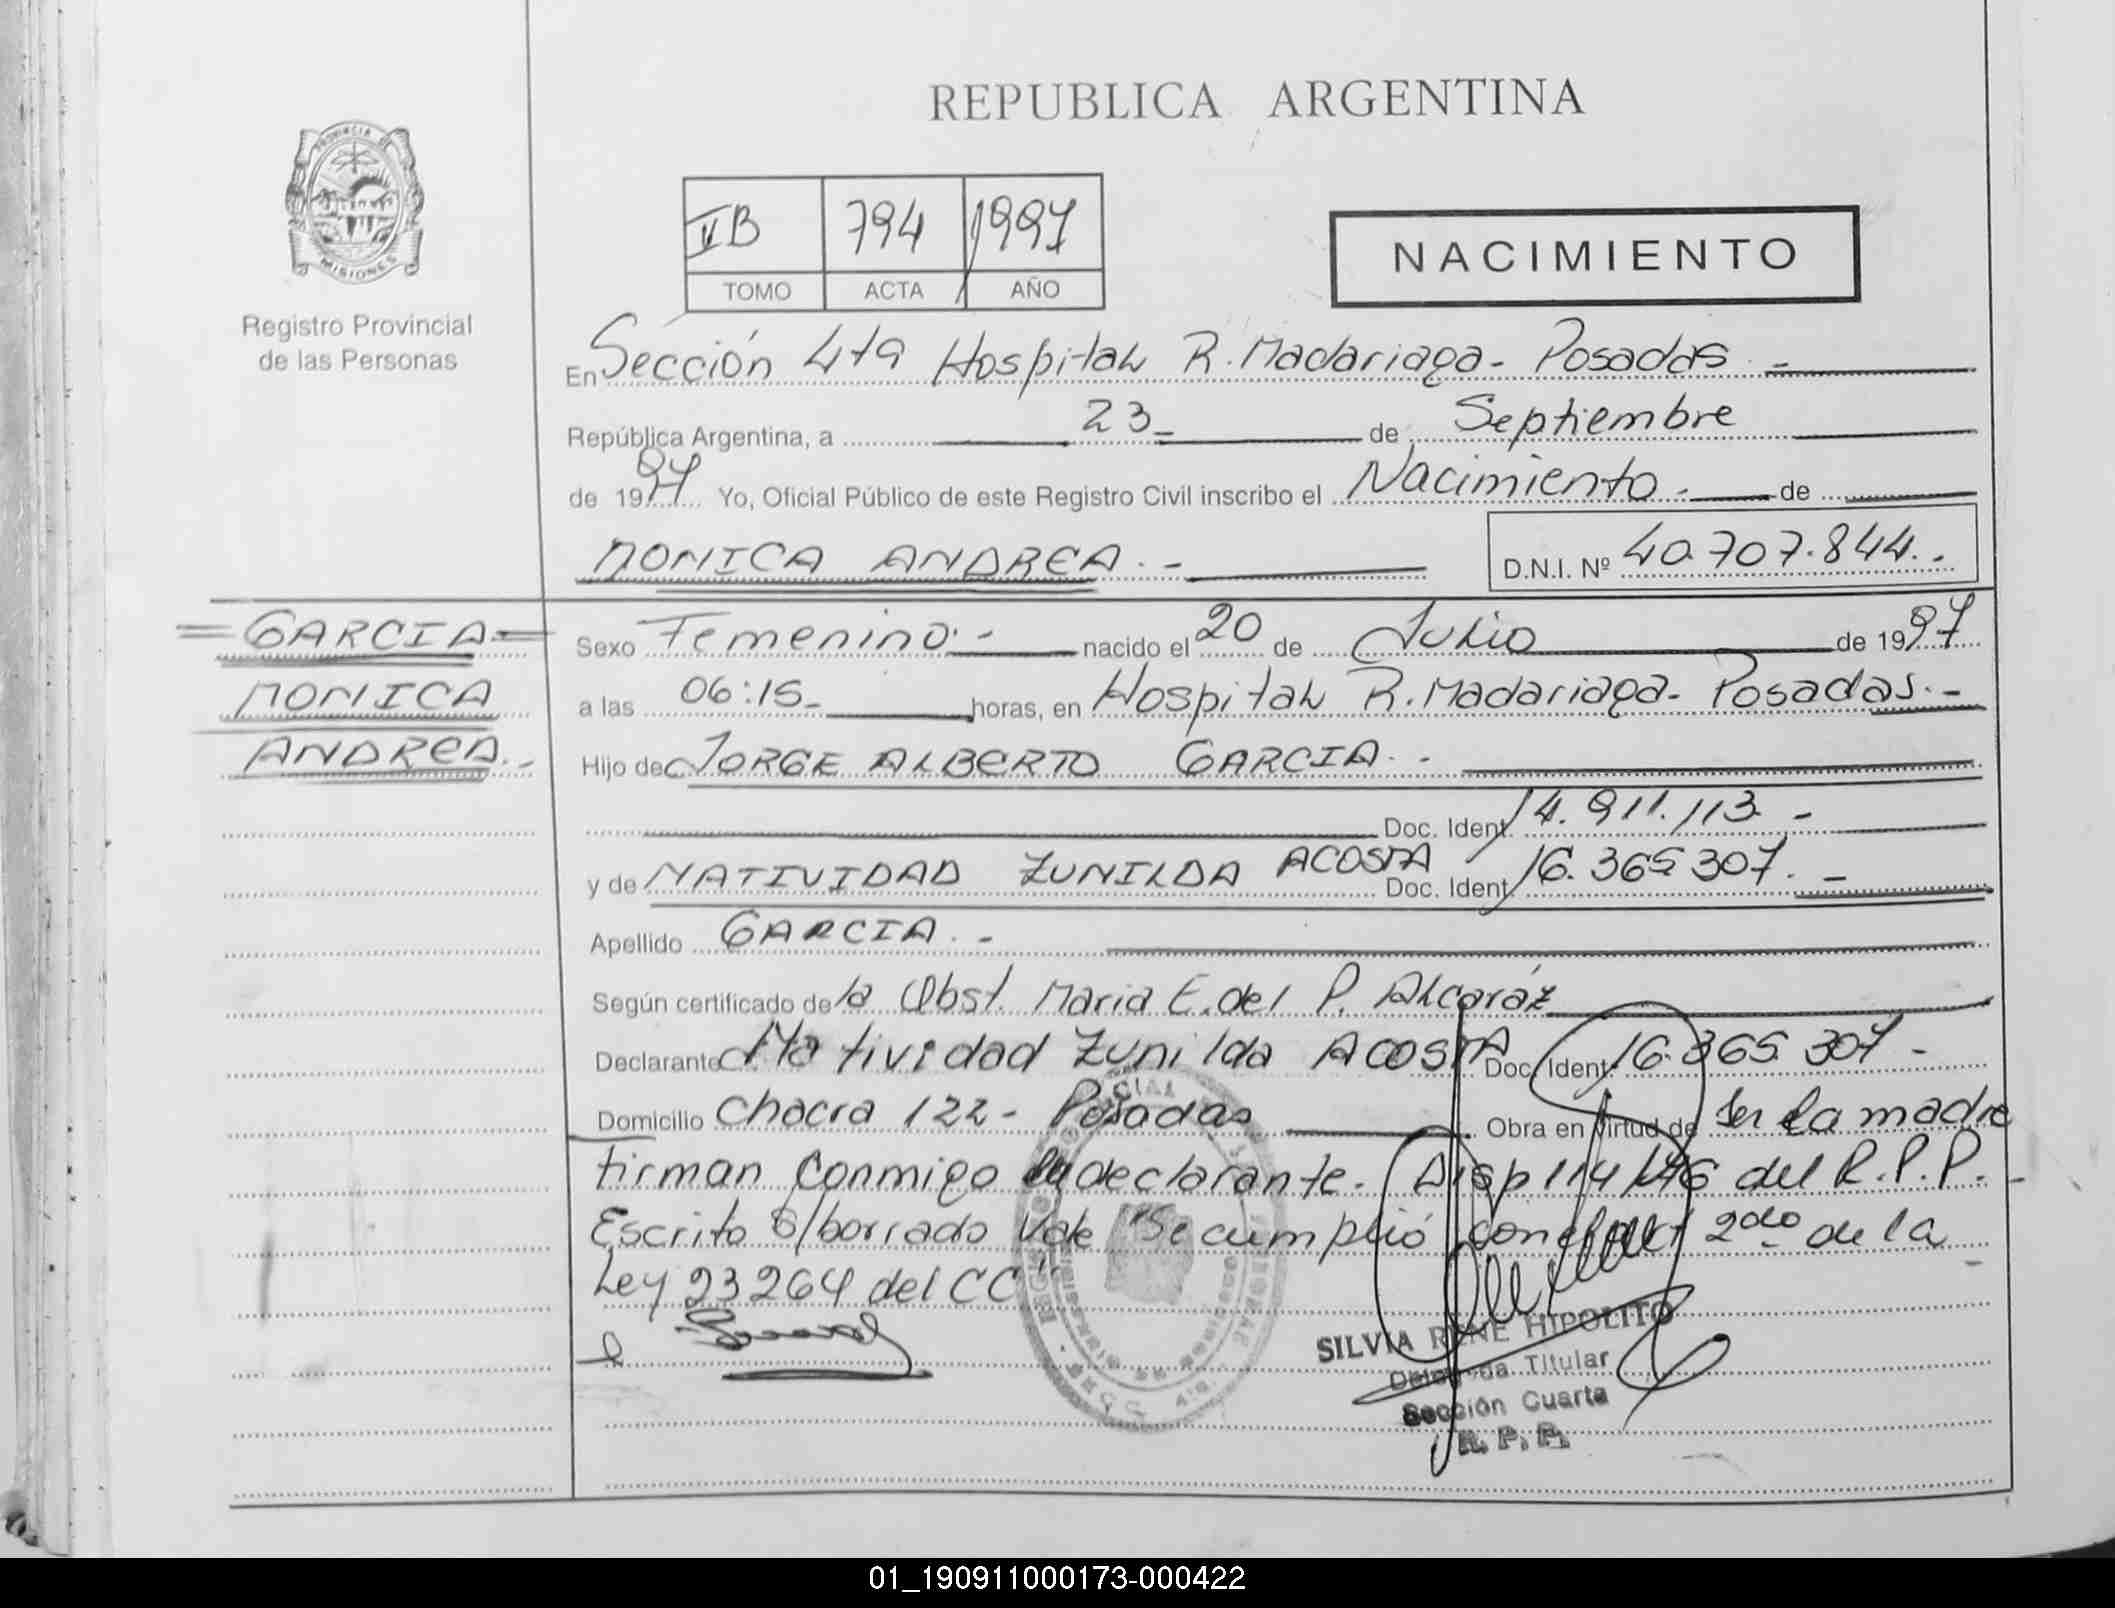 REPUBLICA ARGENTINA
PROVINCIA DE
MISIONES
Registro Provincial
de las Personas
II B 794 1997
TOMO ACTA AÑO
NACIMIENTO
En Sección 4ta Hospital R. Madariaga - Posadas . -
República Argentina, a 23 - de Septiembre
de 1997 Yo, Oficial Público de este Registro Civil inscribo el Nacimiento . - de
MONICA ANDREA . - D.N.I. Nº 40.707.844 . -
GARCIA
MONICA
ANDREA . -
Sexo Femenino . - nacido el 20 de Julio de 1997
a las 06:15 - horas, en Hospital R. Madariaga - Posadas . -
Hijo de JORGE ALBERTO GARCIA . -
Doc. Ident. 14.911.113 -
y de NATIVIDAD ZUNILDA ACOSTA Doc. Ident. 16.365 307 . -
Apellido GARCIA . -
Según certificado de la Obst. Maria E. del P. Alcaráz
Declarante Natividad Zunilda ACOSTA Doc. Ident. 16.365 307 -
Domicilio Chacra 122 - Posadas Obra en virtud de Ser la madre
firman conmigo la declarante. Disp 114/76 del R.P.P. -
Escrito s/borrado Vale "Se cumplió con el art 2do de la
Ley 23264 del CC"
SILVIA RENE HIPOLITO
Delegada Titular
Sección Cuarta
R. P. P.
01_190911000173-000422